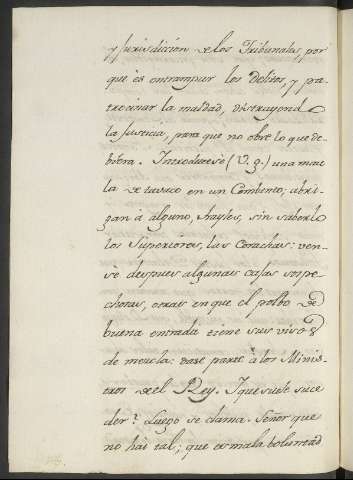 y Jurisdiccion de los Tribunales, por
que es entrampar los delitos, y pa-
trocinar la maldad, distrayendo
la Justicia, para que no obre lo que de-
biera. Introducese (V. g.) una maca
la de tavaco en un Combento; abri-
gan à alguno, frayles, sin saberlo
los Superiores, las Corachas: ven-
se despues algunas cajas sospe-
chosas, otras en que el polbo de
buena entrada tiene sus visos
de mezcla: dase parte à los Minis-
tros de el Rey. I que suele suce
der? Luego se clama. Señor que
no hai tal; que es mala boluntad